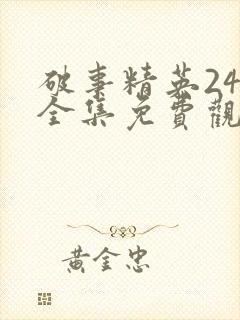 破事精英24
全集免費觀
黃金忠